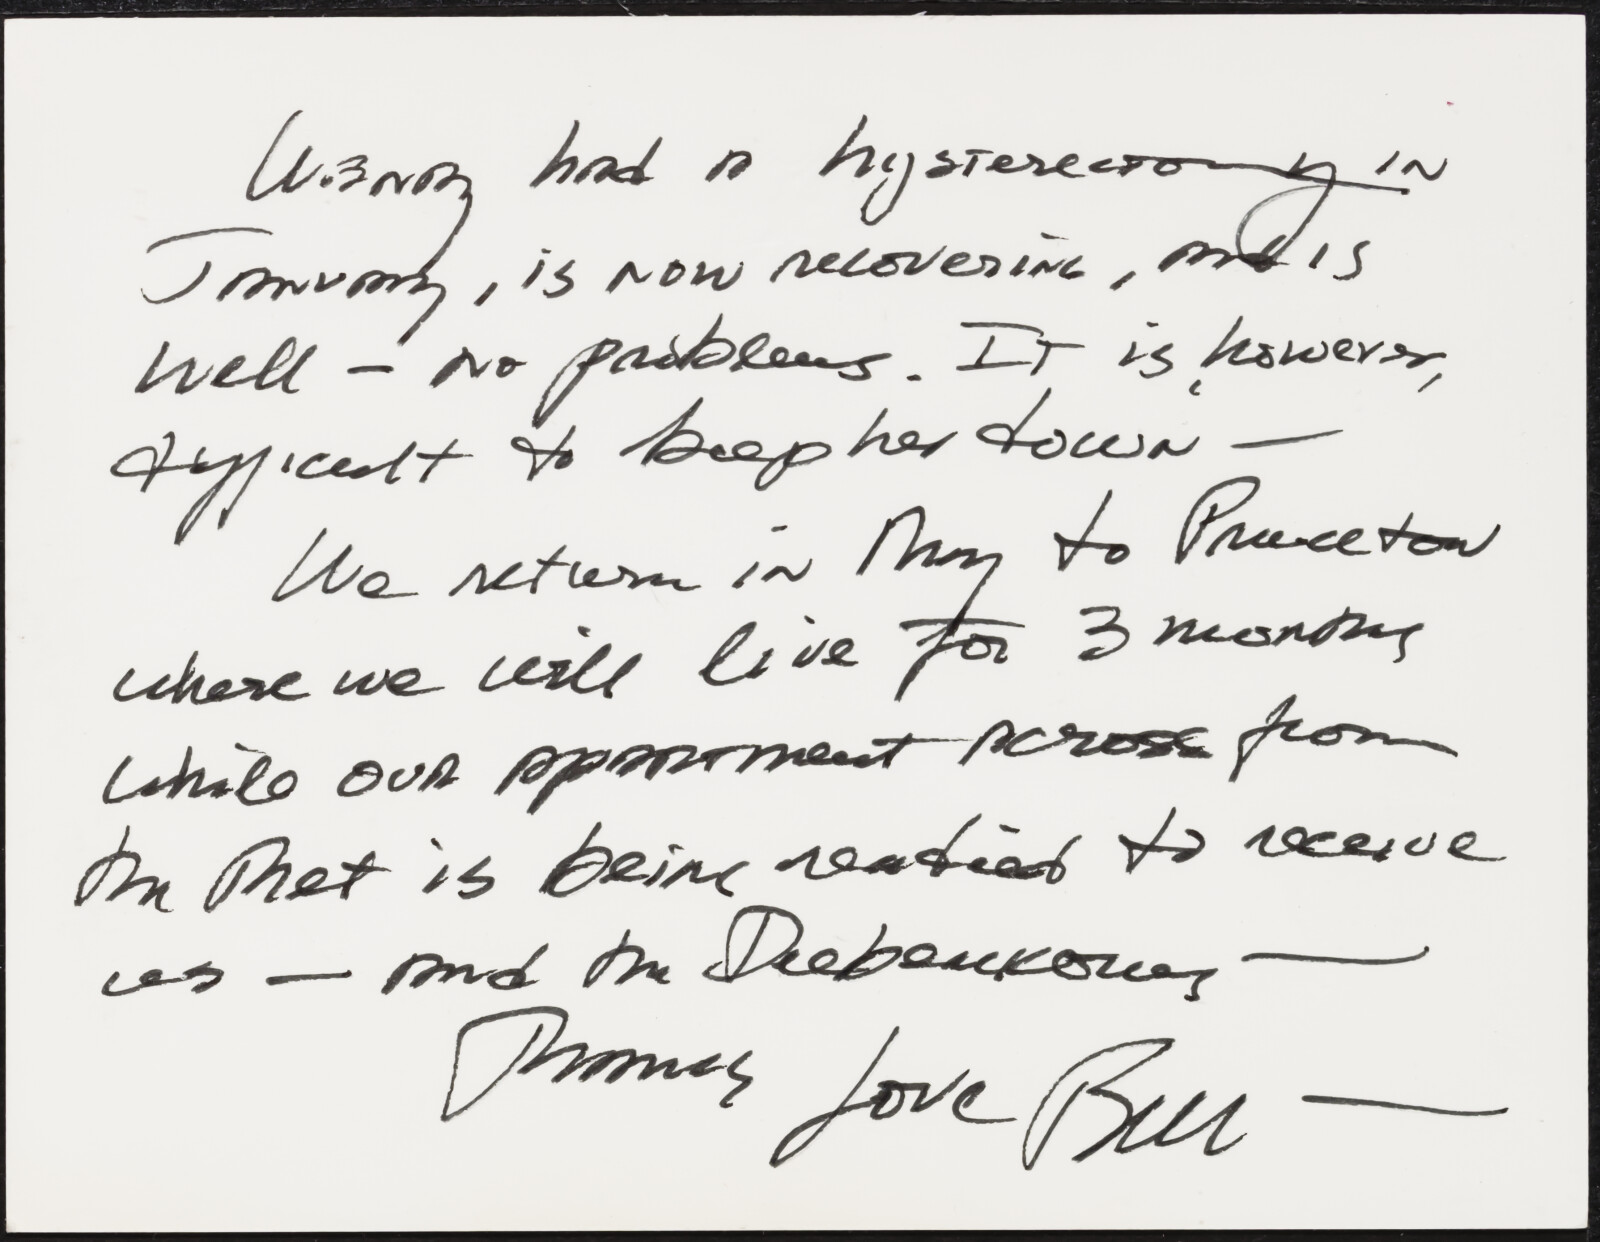 Wendy had a hysterectomy in
January, is now recovering, and is
well – no problems. It is, however,
difficult to keep her down —
We return in May to Princeton
where we will live for 3 months
while our appartment across from
the Met is being readied to receive
us — and the Diebenkorns —
Thomas Love Bill —